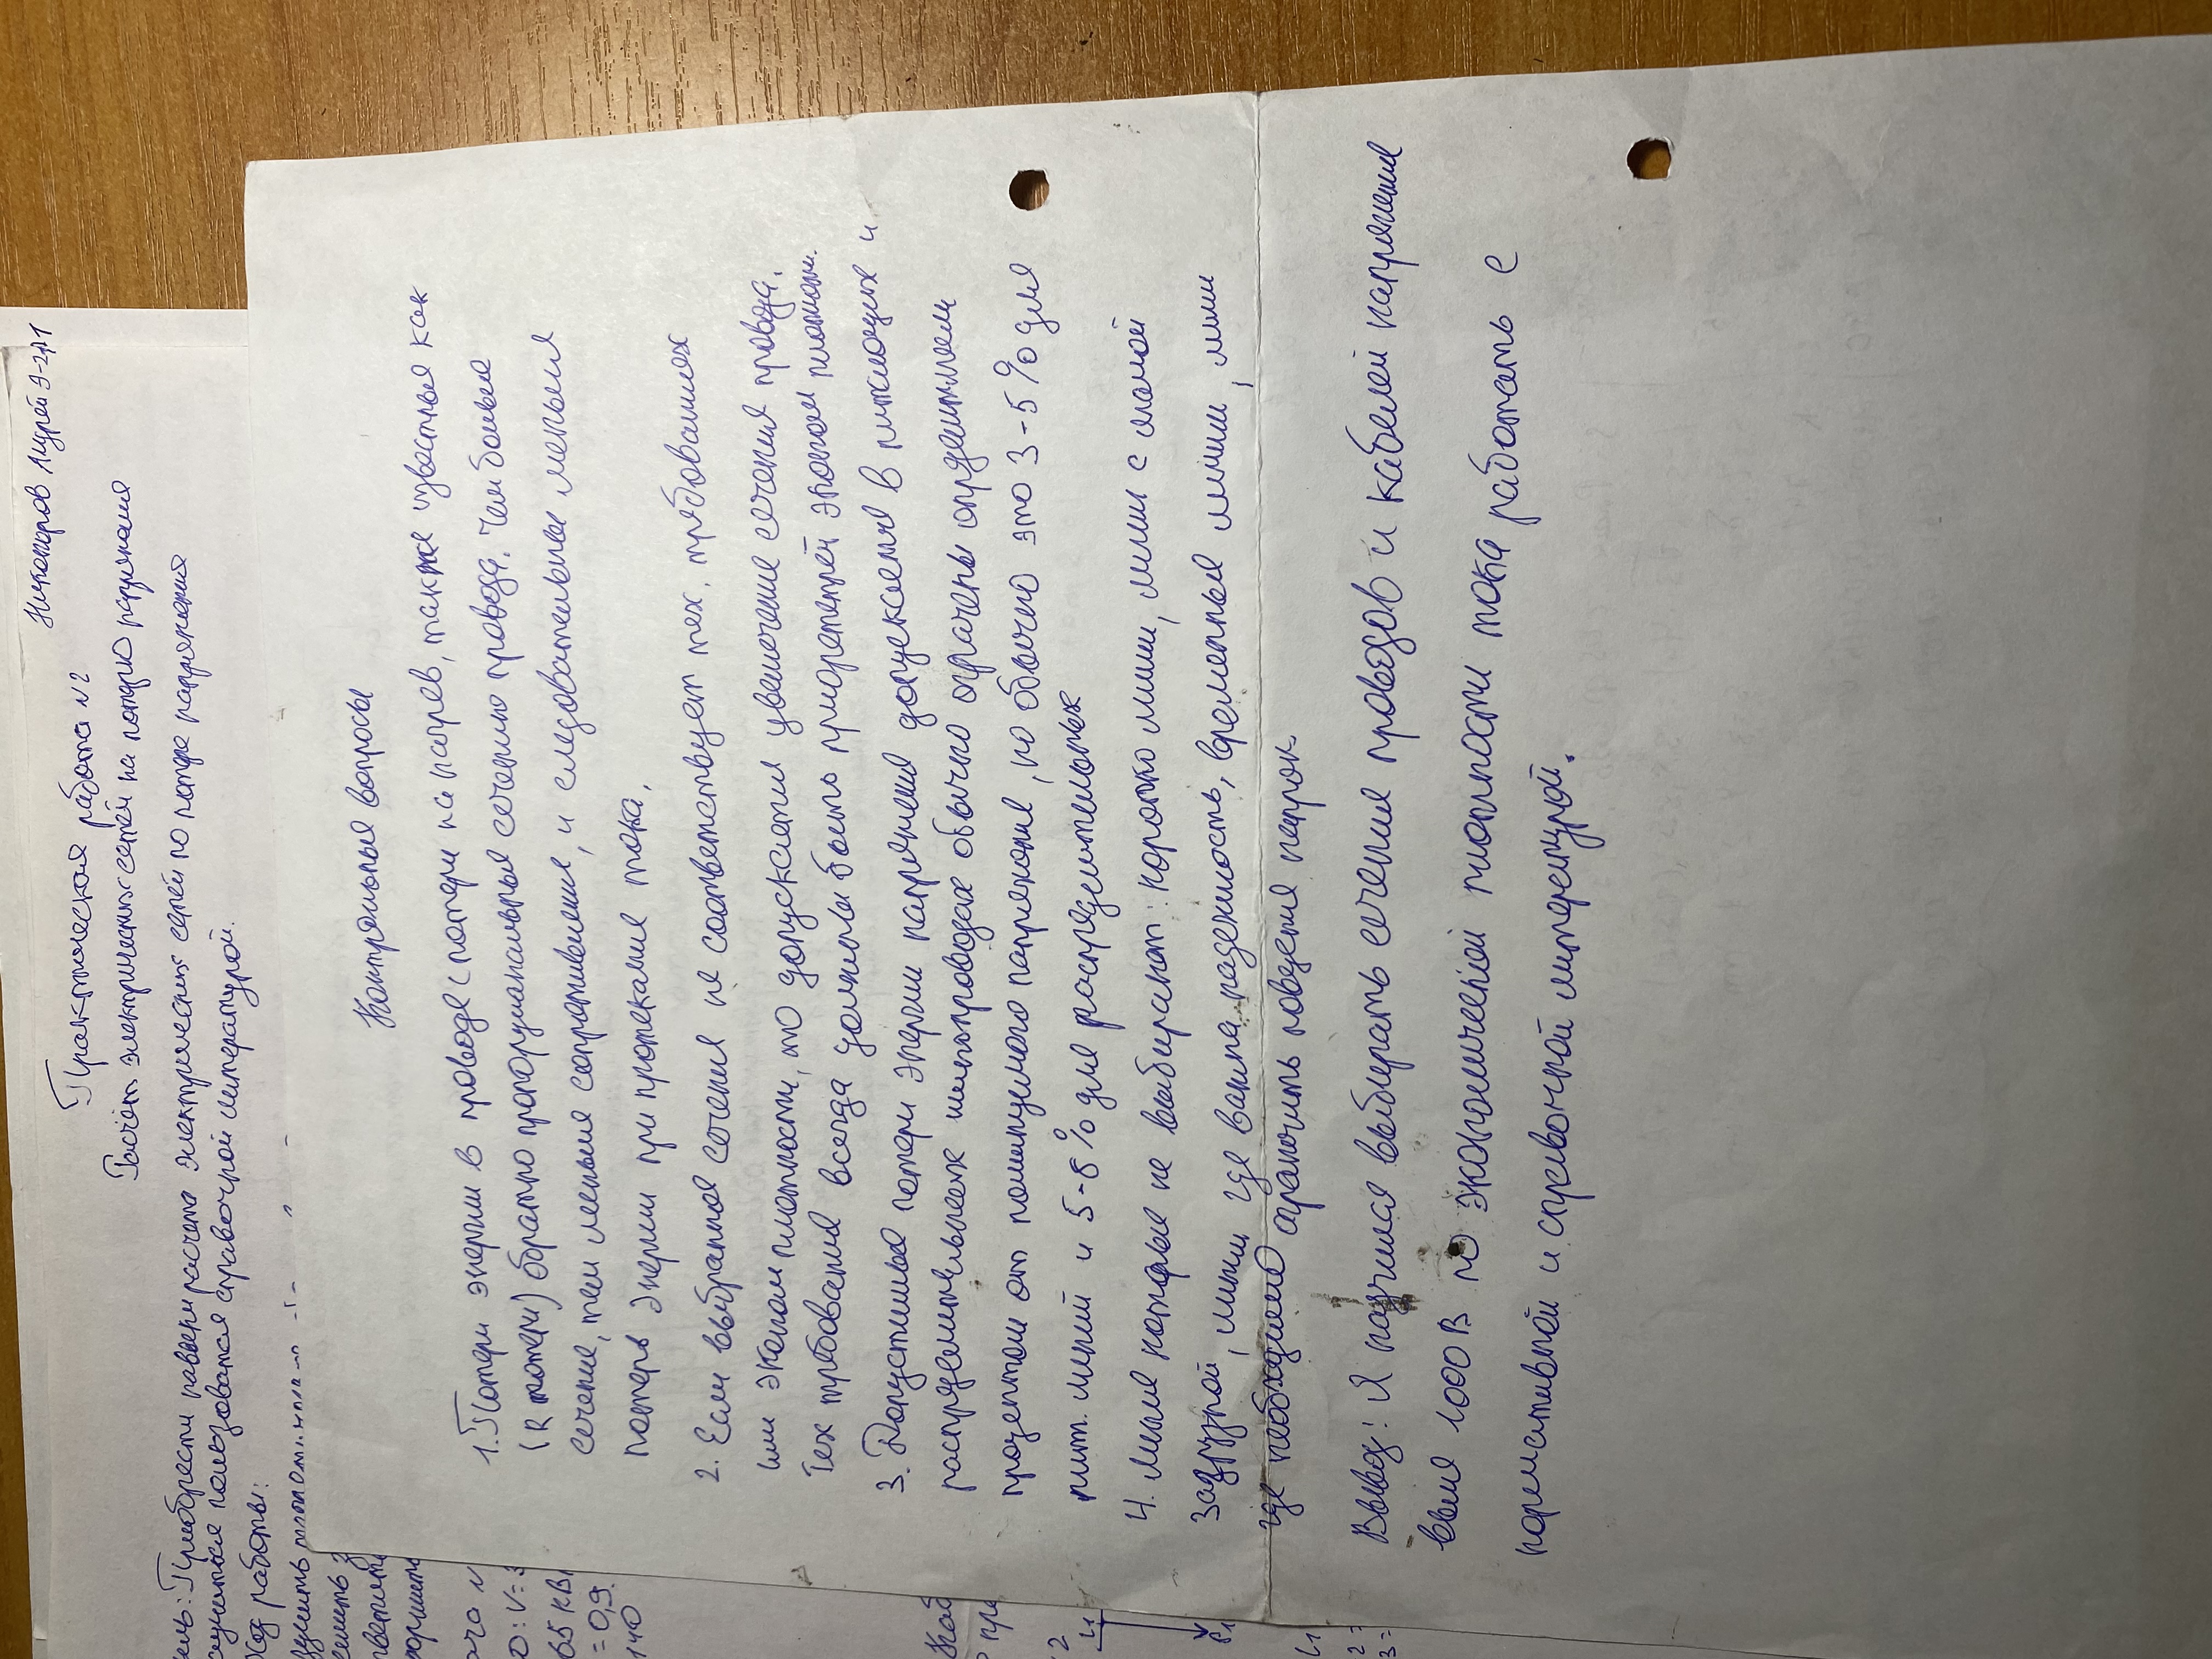 Никоноров Андрей Э-211
Практическая работа №2
Расчёт электрических сетей на потерю напряжения
Приобрести навыки расчета электрических сетей по потере напряжения
научиться пользоваться справочной литературой.
Ход работы:
Контрольные вопросы
1. Потери энергии в проводе (потери на нагрев, также известные как
(R потери) обратно пропорциональные сечению провода. Чем больше
сечение, тем меньше сопротивление, и следовательно меньше
потерь энергии при протекание тока.
2. Если выбранное сечение не соответствует тех. требованиях
или эконом плотности, то допускается увеличение сечения провода.
Тех требования всегда должны быть приоретней эконом плотности.
3. Допустимые потери энергии напряжения допускаемые в питающих и
распределительных шинопроводах обычно ограчены определителем
процентом от номинуного напряжение, но обычно это 3-5% для
пит. линий и 5-8% для распределительных
4. Линия которые не выбирают: коротко линии, линии с малой
загрузкой, линии где важна надежность, временные линии, линии
где необходимо ограничить поведения нагрузок.
Вывод: Я научился выбирать сечение проводов и кабелей напряжения
выше 1000 В по экономической плотности тока работать с
нормативной и справочной литературой.
= 0,9